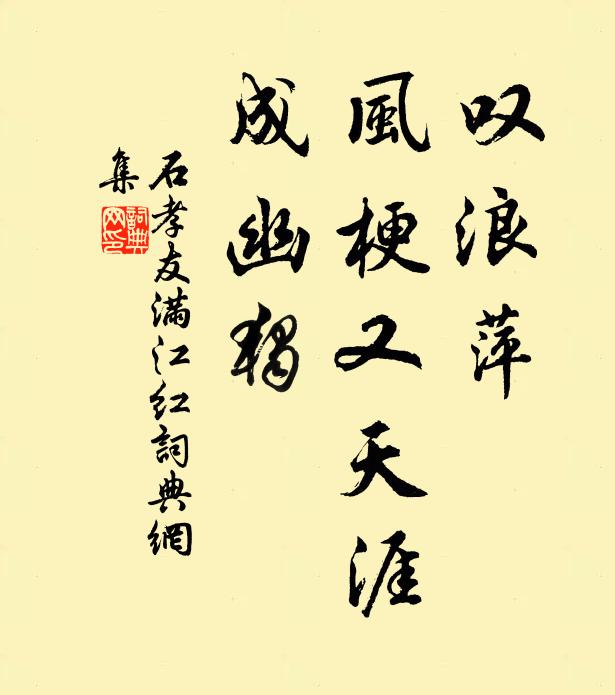 叹浪萍
風梗又天涯
成幽獨
石孝友满江红詞典網
集
詞典網印